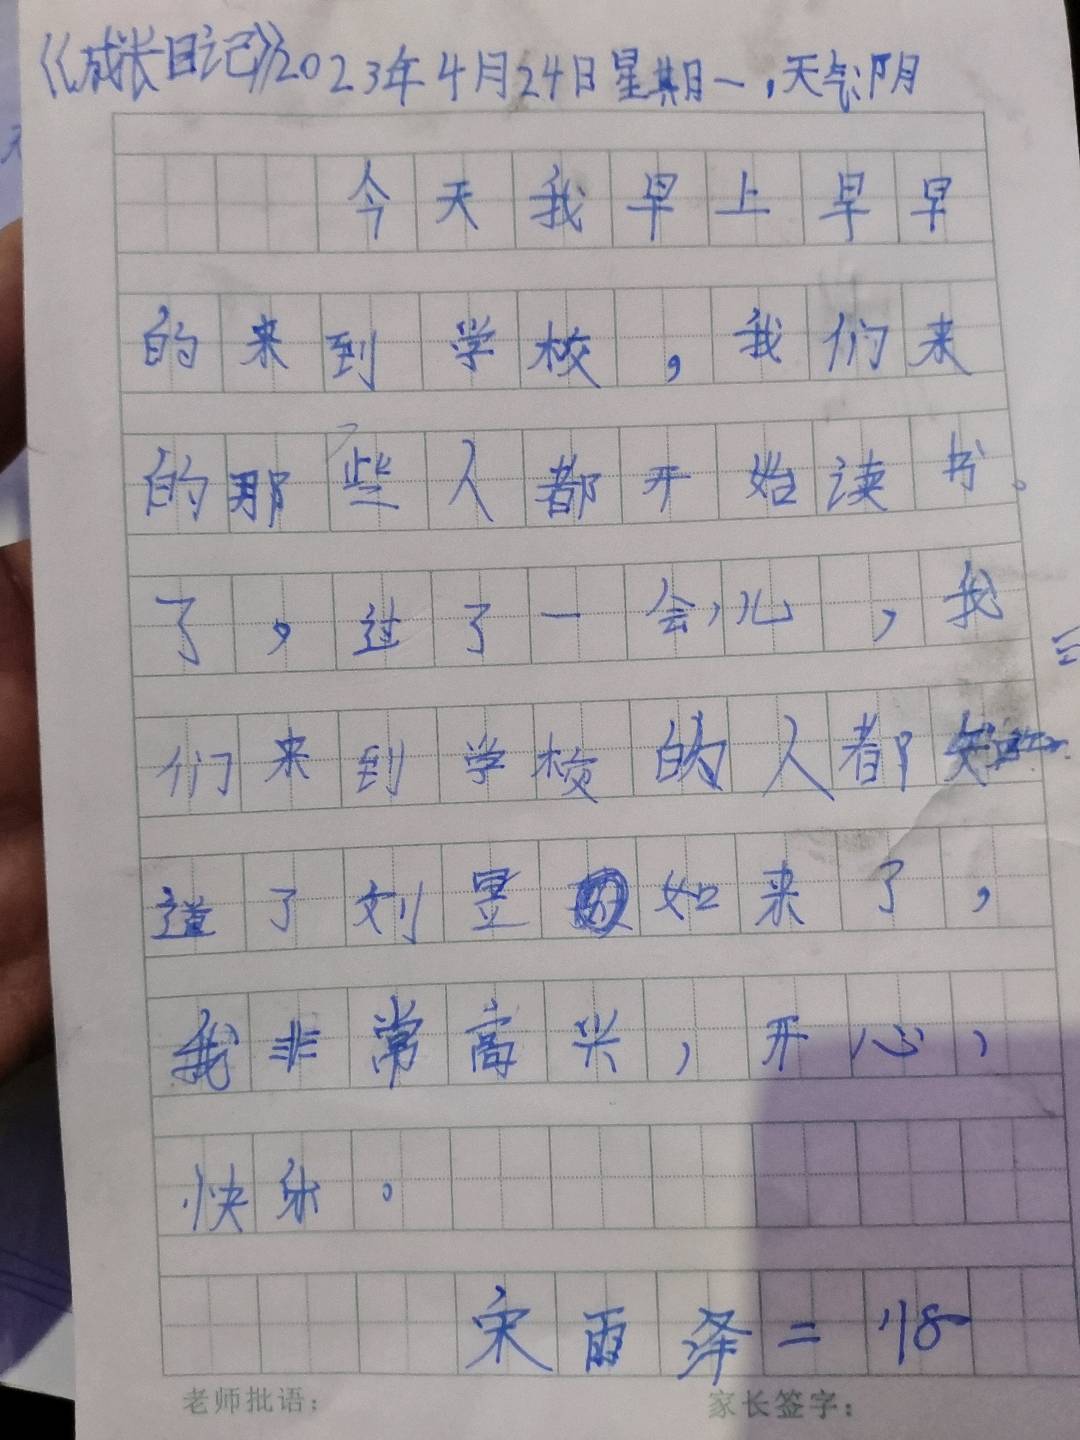 《成长日记》2023年4月24日星期一，天气:阴
今天我早上早早
的来到学校，我们来
的那些人都开始读书。
了，过了一会儿，我
们来到学校的人都知
道了刘昱如来了，
我非常高兴，开心，
快乐。
宋雨泽=18
老师批语：
家长签字：